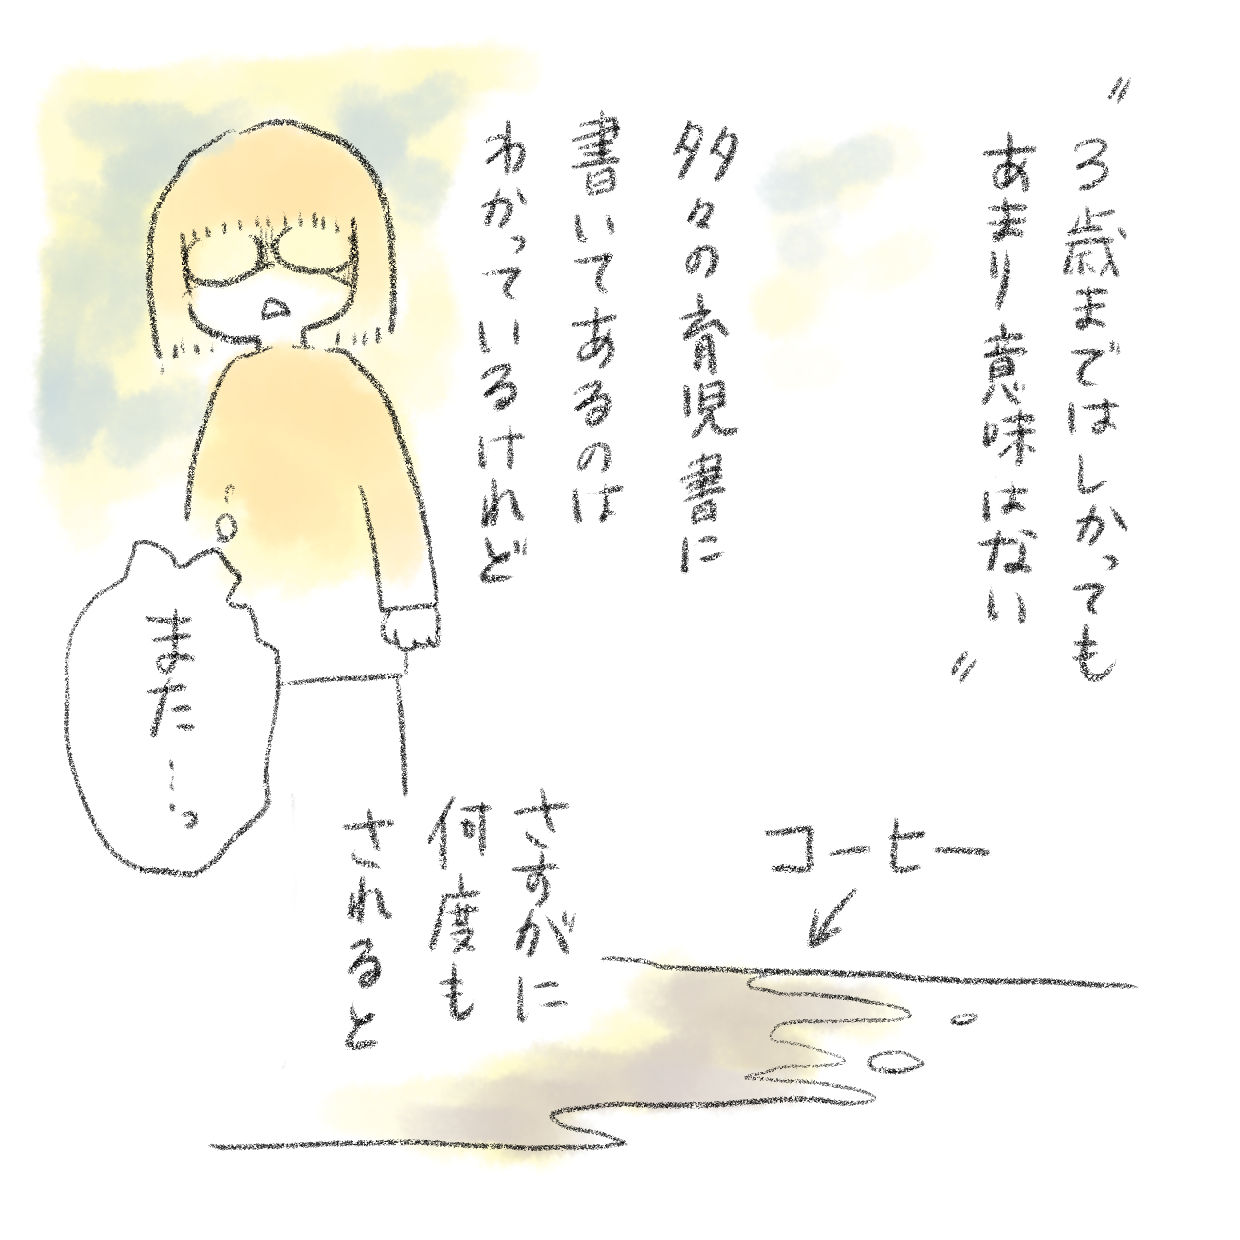 〃3歳まではしかっても
あまり意味はない〃
多々の育児書に
書いてあるのは
わかっているけれど
また…っ
さすがに
何度も
されると
コーヒー